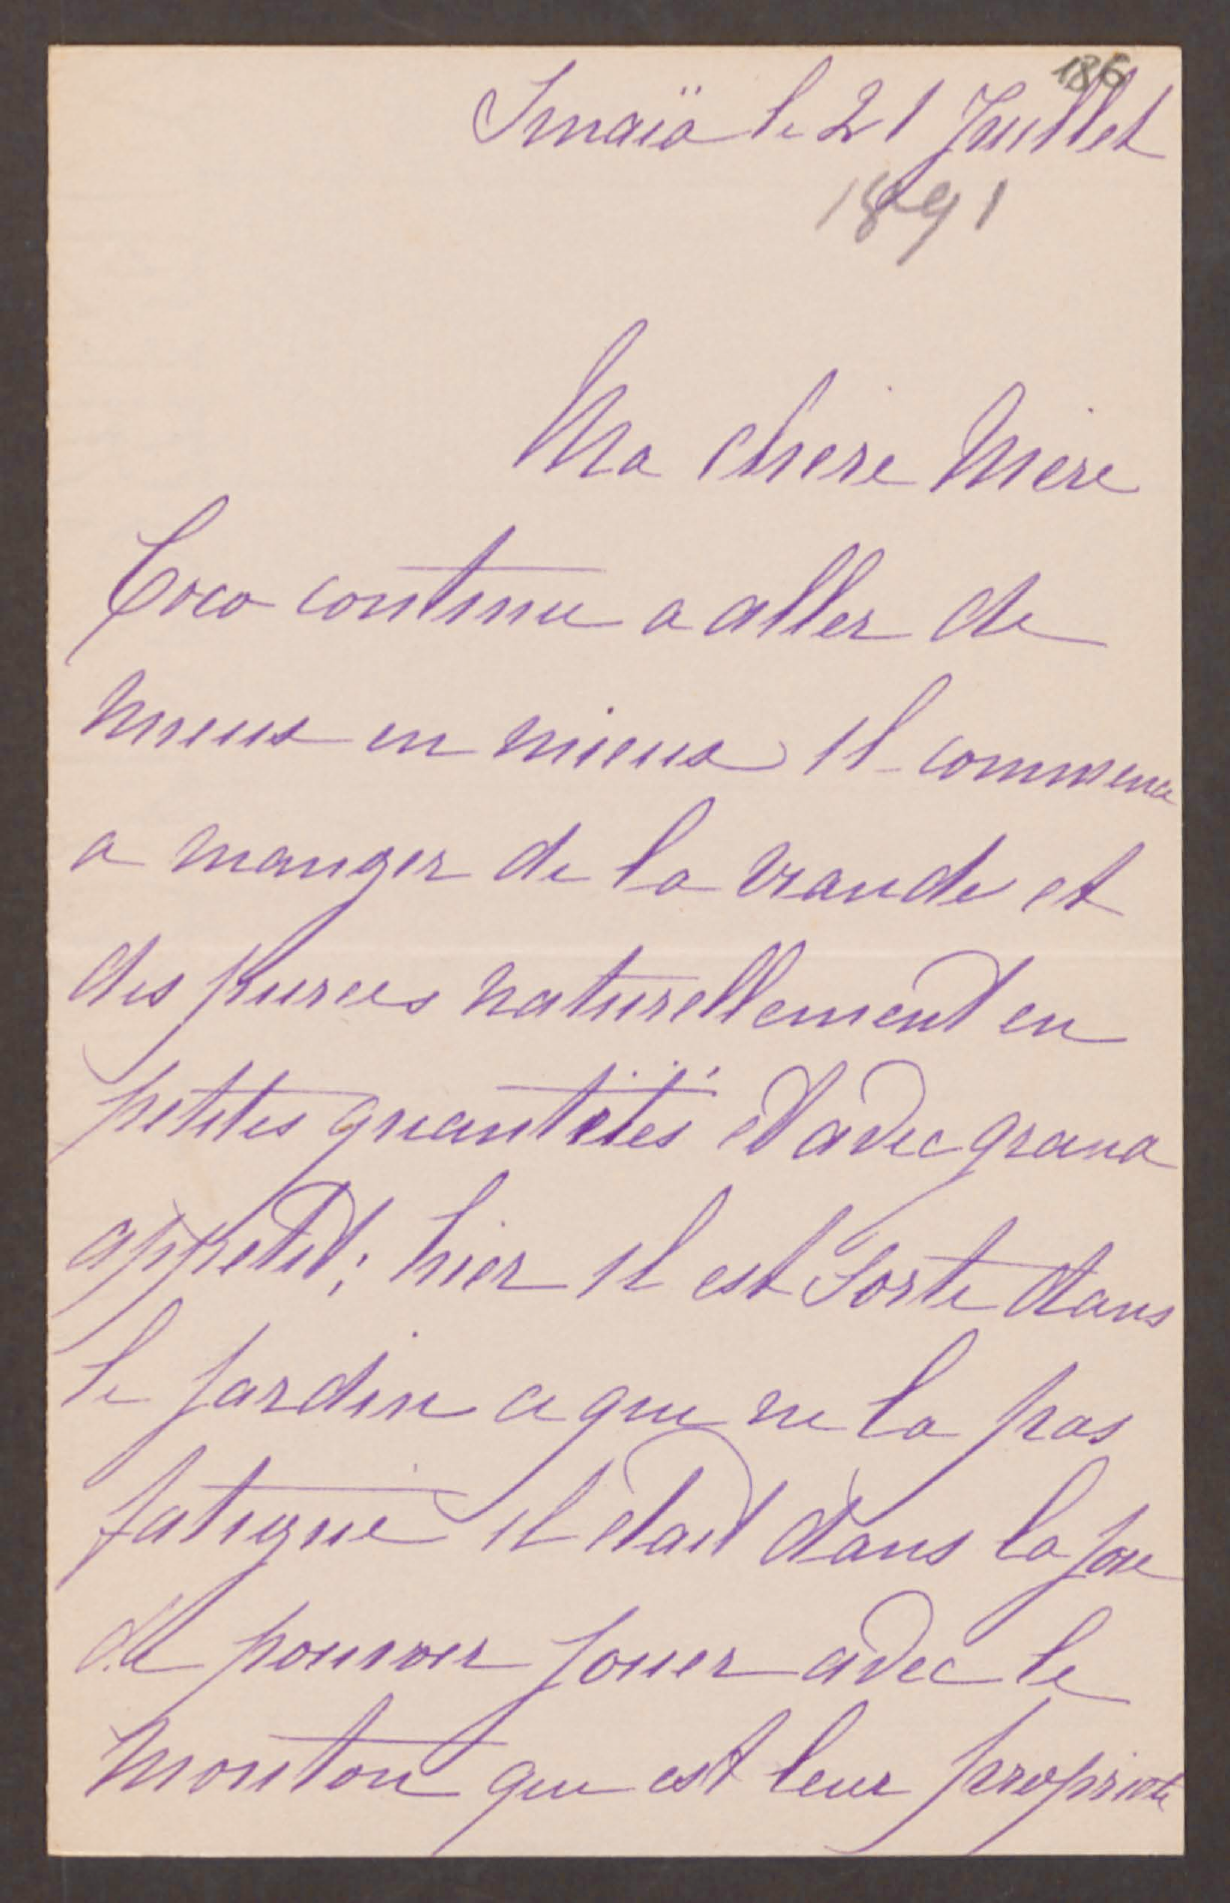 186
Sinaïa le 21 Juillet
1891
Ma chere Mère
Coco continue a aller de
mieux en mieux il commence
a manger de la viande et
des purees naturellement en
petites quantités et avec grand
appetit; hier il est sorti dans
le jardin ce qui ne la pas
fatigué il etait dans la joie
de pouvoir jouer avec le
mouton qui est leur propriete